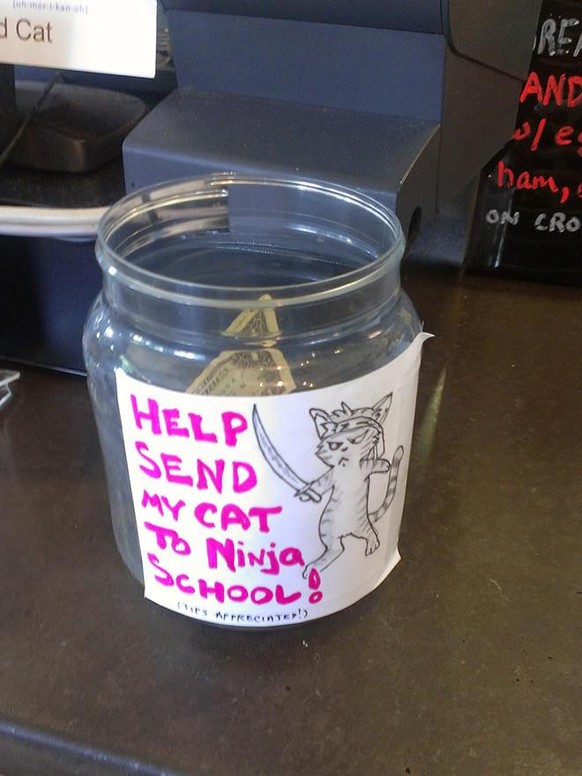 [uh-mer-i-kan-oh]
d Cat
REA
AND
w/e
ham,
ON CRO
HELP
SEND
MY CAT
TO Ninja
SCHOOL!
(TIPS APPRECIATED!)